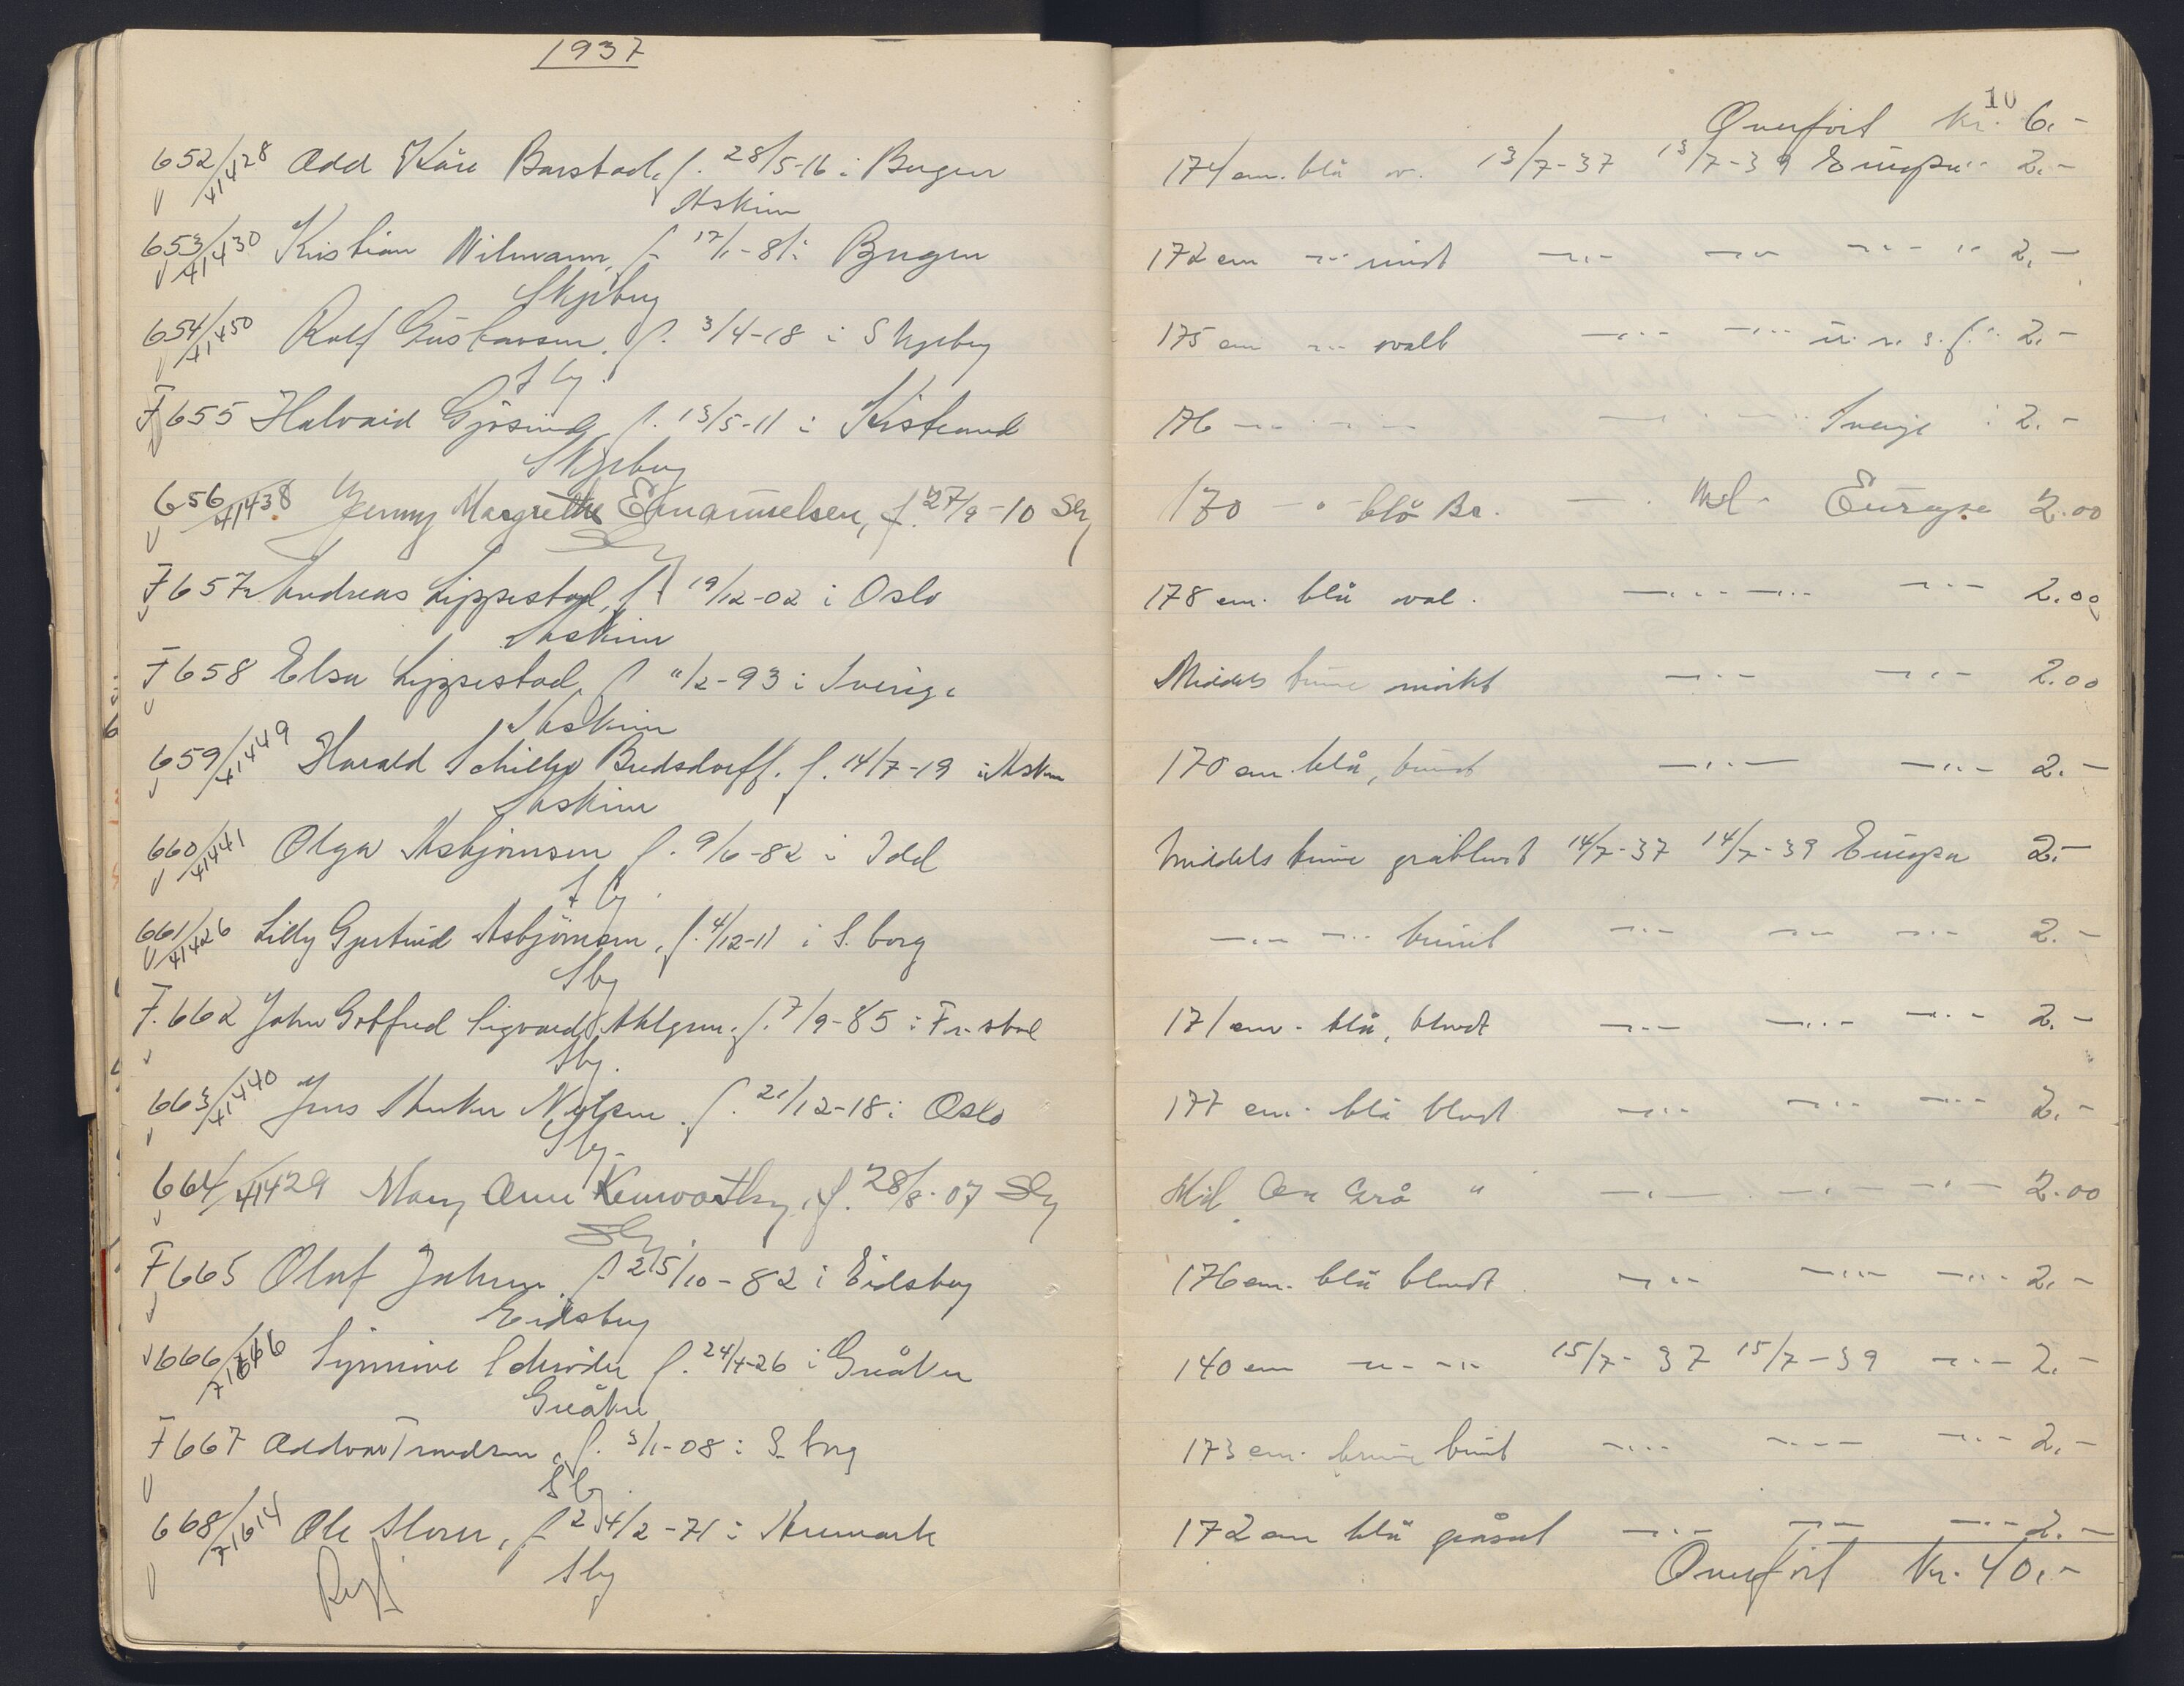 1937
10
Overført kr. 6.-
652/41428 Odd Kåre Barstad, f. 28/5-16 i Bergen 174 cm. blå ov. 13/7-37 13/7-39 Europa 2.-
Askim
653/41430 Kristian Wilmann, f. 17/1-81 i Bergen 172 cm -"- rundt -"- -"- -"- " 2.-
Skjeberg
654/41450 Rolf Gustavsen, f. 3/4-18 i Skjeberg 175 cm -"- ovalt -"- -"- u. r. s. f. 2.-
Sbg.
F 655 Halvard Gjøsund f. 13/5-11 i Kistrand 176 -"- -"- -"- -"- Sverige 2.-
Skjeberg
656/41438 Jenny Margrethe Emanuelsen, f. 27/9-10 Sbg 170 - " - blå Br. -"- Europa 2.00
Sbg
F 657 Andreas Lippestad, f. 19/12-02 i Oslo 178 cm. blå oval. -"- -"- -"- 2.00
Askim
F 658 Elsa Lippestad, f. 11/2-93 i Sverige Middels brune mørkt -"- -"- 2.00
Askim
659/41449 Harald Budsdorff. f. 14/7-19 i Askim 170 cm. blå, brunt -"- -"- 2.-
Askim
660/41441 Olga Asbjørnsen f. 9/6-82 i Idd Middels brune gråblondt 14/7-37 14/7-39 Europa 2.-
Sbg.
661/41426 Lilly Gjertrud Asbjørnsen, f. 4/12-11 i S. borg -"- -"- brunt -"- -"- -"- 2.-
Sbg
F. 662 John Gotfred Sigvard Ahlgren, f. 7/9-85 i Fr.stad 171 cm. blå, blondt -"- -"- -"- 2.-
Sbg.
663/41440 Jens Anker Nilsen f. 21/12-18 i Oslo 177 cm. blå blondt -"- -"- -"- 2.-
Sbg.
664/41429 Mary Ann Kenworthy, f. 28/8-07 Sbg Mid. Grå " -"- -"- -"- 2.00
Sbg
F 665 Olaf Jahren f. 25/10-82 i Eidsberg 176 cm. blå blondt -"- -"- -"- 2.-
Eidsberg
666/71646 Synnøve Schrøder f. 24/4-26 i Greåker 140 cm -"- -"- 15/7-37 15/7-39 -"- 2.-
Greåker
F 667 Oddvar Trondsen, f. 3/1-08 i S. borg 173 cm. brune brunt -"- -"- -"- 2.-
Sbg
668/71614 Ole Moren, f. 24/2-71 i Aremark 172 cm blå gråsort -"- -"- -"- 2.-
Sbg
Overført kr. 40.-